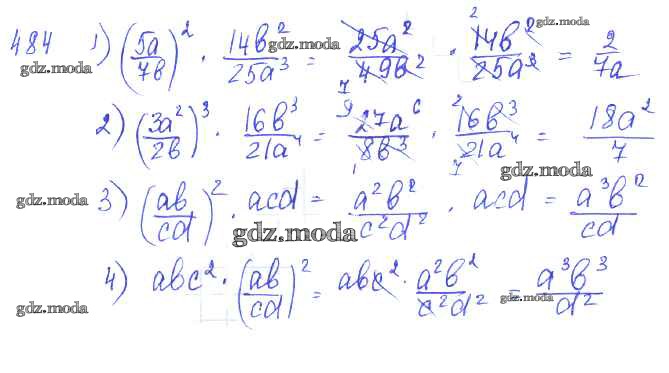 484 1) (5a/7b)² · 14b²/25a³ = 25a²/49b² · 14b²/25a³ = 2/7a
2) (3a²/2b)³ · 16b³/21a⁴ = 27a⁶/8b³ · 16b³/21a⁴ = 18a²/7
3) (ab/cd)² · acd = a²b²/c²d² · acd = a³b²/cd
4) abc² · (ab/cd)² = abc² · a²b²/c²d² = a³b³/d²
gdz.moda
gdz.moda
gdz.moda
gdz.moda
gdz.moda
gdz.moda
gdz.moda
gdz.moda
gdz.moda